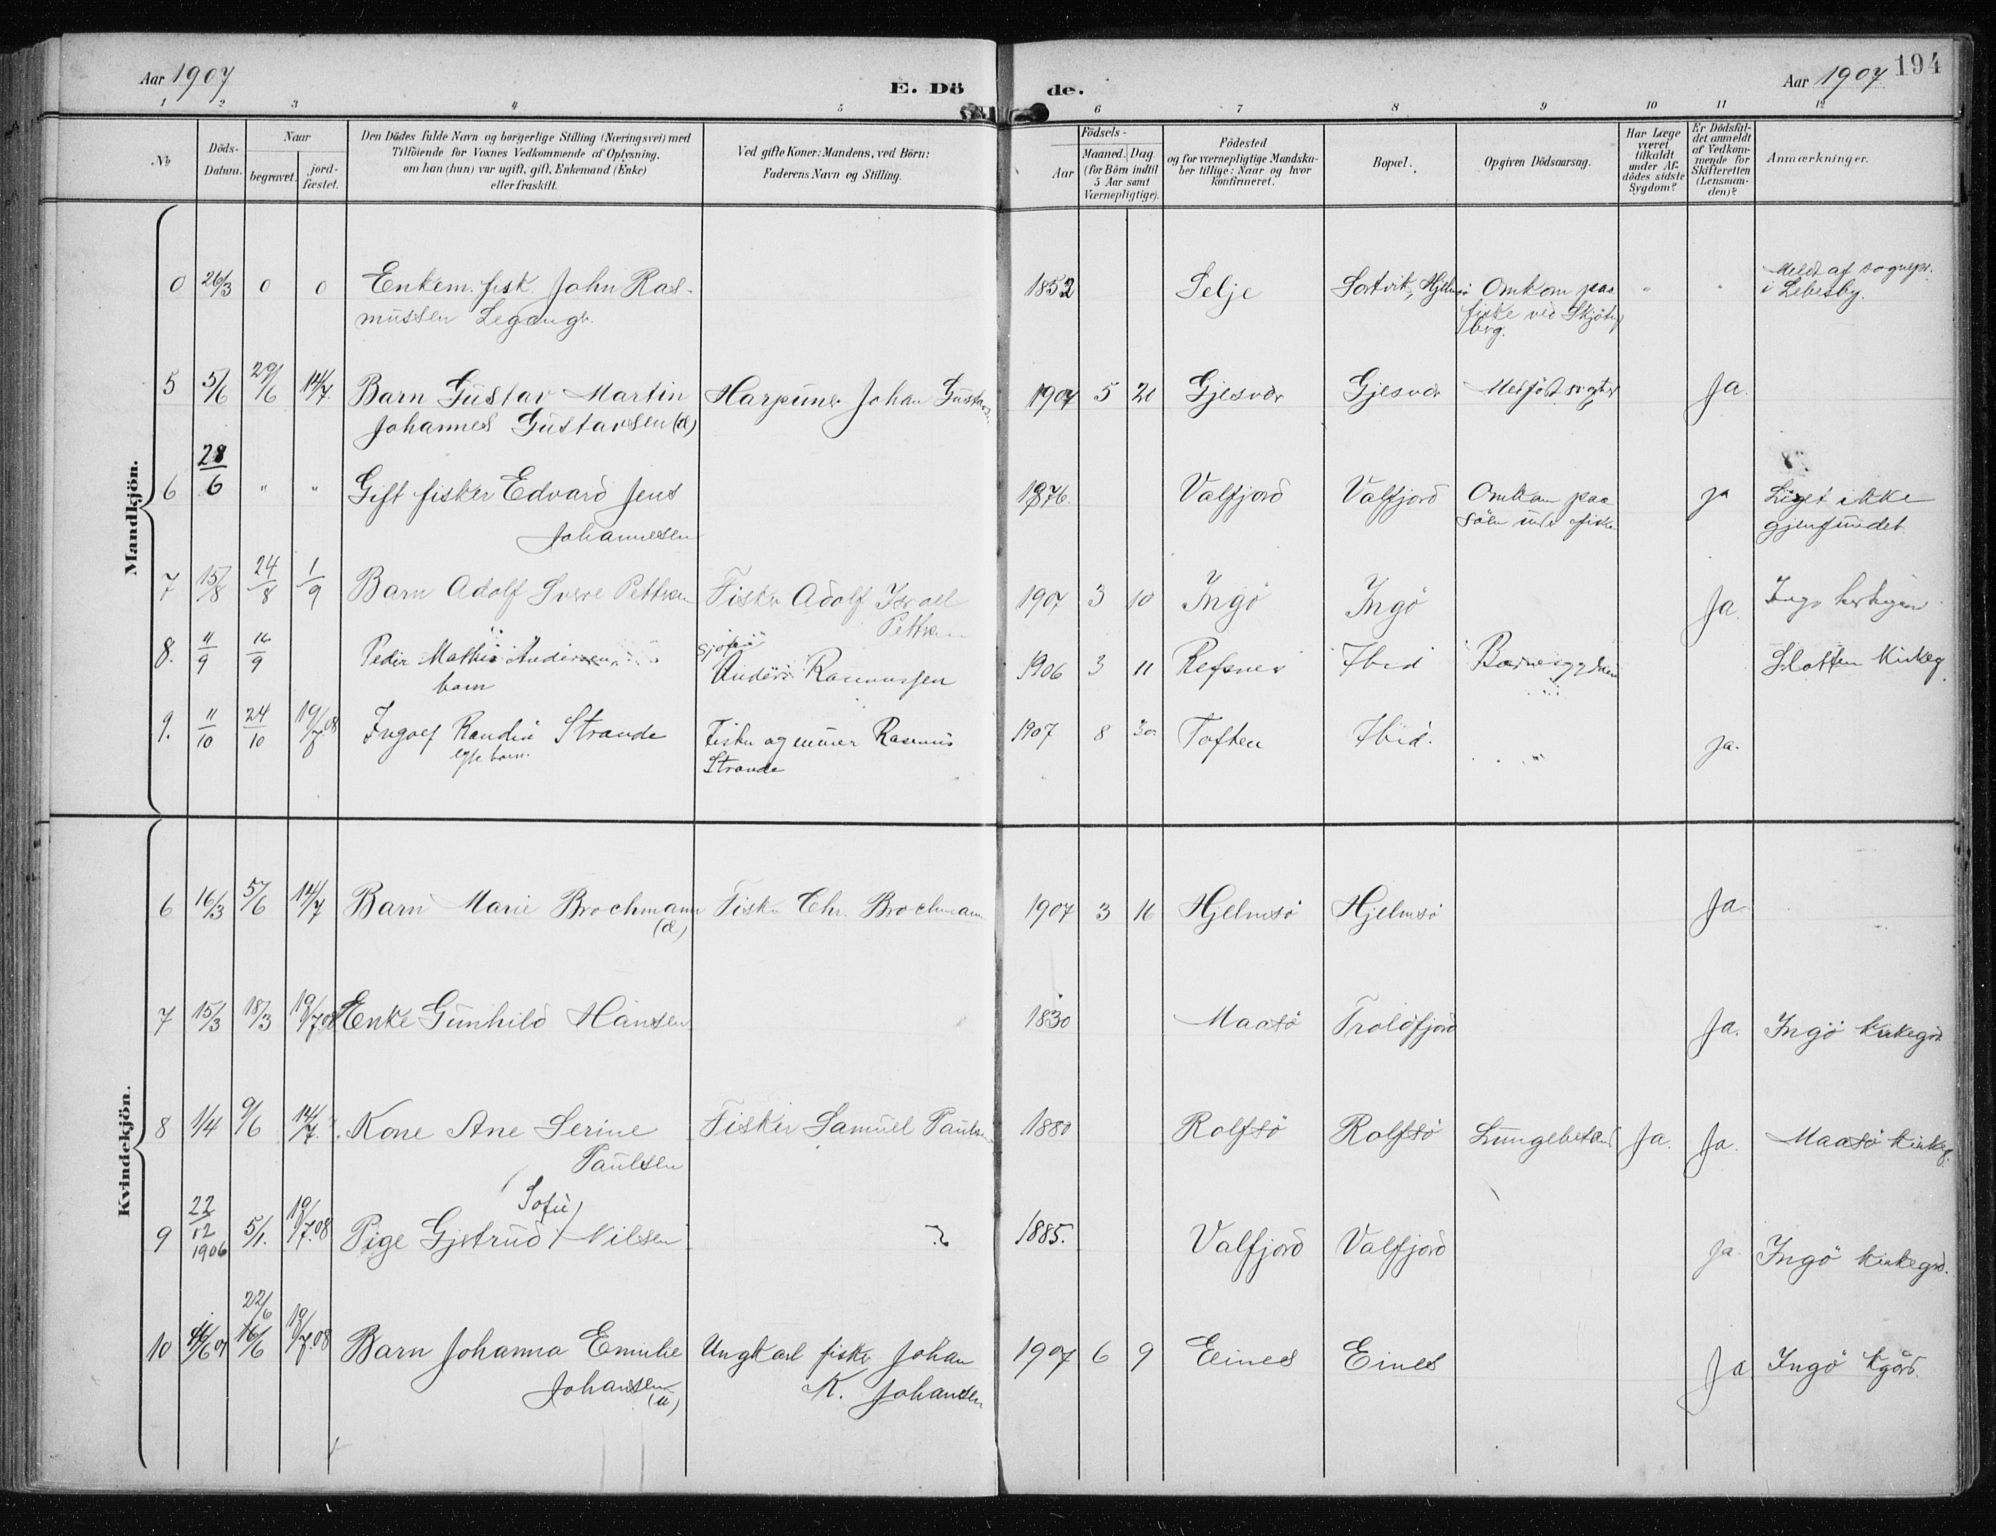 Aar 1907
E. Dö
de.
Aar 1907
194
1 2 3 4 5 6 7 8 9 10 11 12
No
Döds-
Datum.
Naar
begravet.
jord-
fæstet.
Den Dödes fulde Navn og borgerlige Stilling (Næringsvei) med
Tilföiende for Voxnes Vedkommende af Oplysning,
om han (hun) var ugift, gift, Enkemand (Enke)
eller fraskilt.
Ved gifte Koner: Mandens, ved Börn:
Faderens Navn og Stilling.
Födsels-
Aar
Maaned. Dag
(for Börn indtil
5 Aar samt
Værnepligtige).
Födested
og for værnepligtige Mandska-
ber tillige: Naar og hvor
konfirmeret.
Bopæl.
Opgiven Dödsaarsag.
Har Læge
været
tilkaldt
under Af-
dödes sidste
Sygdom?
Er Dödsfal-
det anmeldt
af Vedkom-
mende for
Skifteretten
(Lensman-
den)?
Anmærkninger.
Mandkjön.
0 26/3 0 0 Enkem. fisk John Ras-
mussen 1852 Selje Omkom paa
fiske ved
berg. " " Meldt af sognepr.
i Lebesby.
5 5/6 29/6 14/7. Barn Gustav Martin
Johannes Gustavsen (æ) Harpuner Johan 1907 5 20 Gjesvær Gjesvær Ja.
6 28/6 " " Gift fisker Edvard Jens
Johannesen 1876. Valfjord Valfjord Omkom paa
fiske ja Liget ikke
gjenfundet
7 15/8 24/8 1/9 Barn Adolf Sverre Fisker Adolf Israel
1907 3 10 Ingö Ingö Ja.
8. 11/9 16/9 Peder Andersen
barn Rasmussen 1906 3 11 Refsnes Ibid Slotten Kirkeg.
9. 11/10 24/10 19/7 08 Strande
barn. Fisker og Rasmus
Strande 1907 8 30. Toften Ibid. ja.
Kvindekjön.
6 16/3 5/6 14/7 Barn Marie Brochmann
(æ) Fisker Chr. Brochmann 1907 3 16 Hjelmsö Hjelmsö Ja
7 15/3 18/3 19/7 08 Enke Gunhild Hansen 1830 Maasö Troldfjord Ja. Ingö Kirkegrd
8 1/4 9/6 14/7. Kone Ane Serine
Paulsen Fisker Samuel Paulsen 1880 Rolfsö Rolfsö Ja. Ja. Maasö Kirkeg.
9 22/12 1906 5/1. 19/7. 08 Pige Gjetrud Sofie Nilsen ? 1885. Valfjord Valfjord Ja. Ingö Kirkegrd.
10 22/6 16/6 19/7. 08 Barn Johanna Emelie
Johansen
(u) Ungkarl fisker Johan
K. Johansen 1907 6 9 Eines Eines Ja Ingö Kgård.